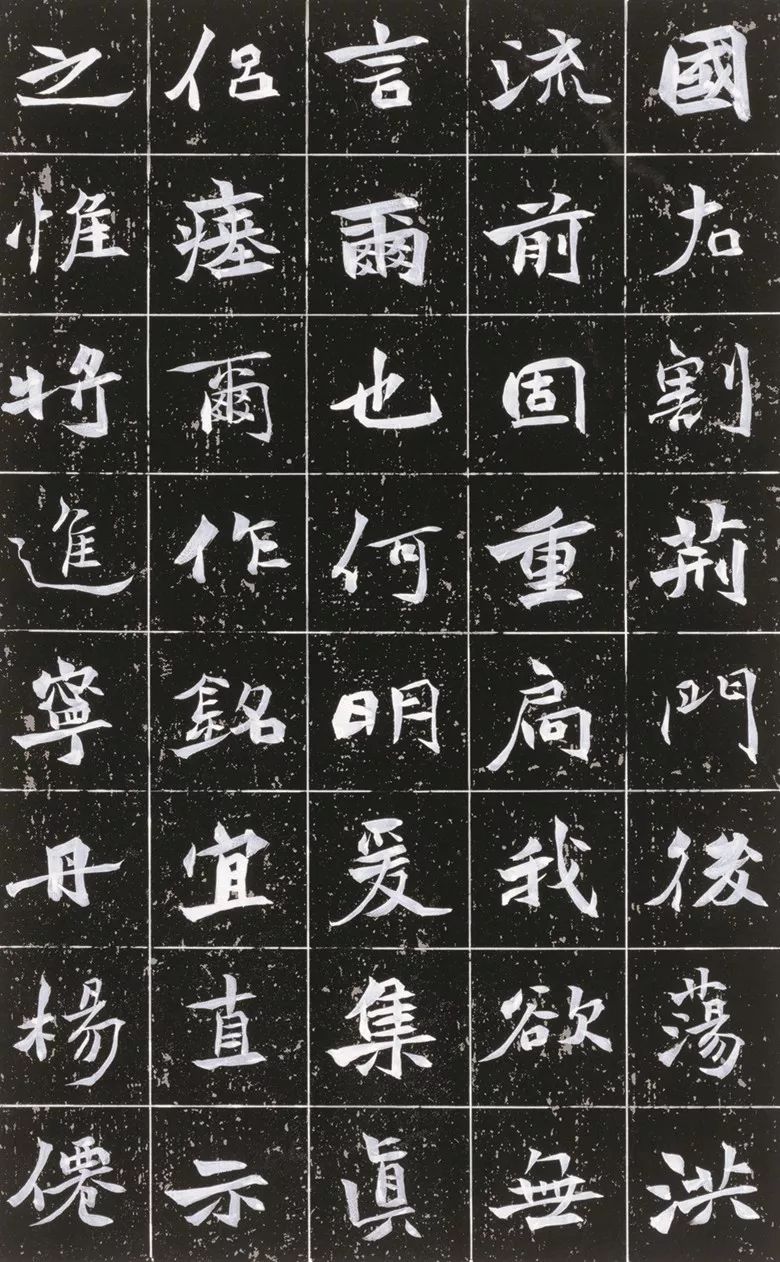 國右割荊門後蕩洪
流前固重扃我欲無
言爾也何明爰集眞
侶瘞爾作銘宜直示
之惟將進寧丹楊僊